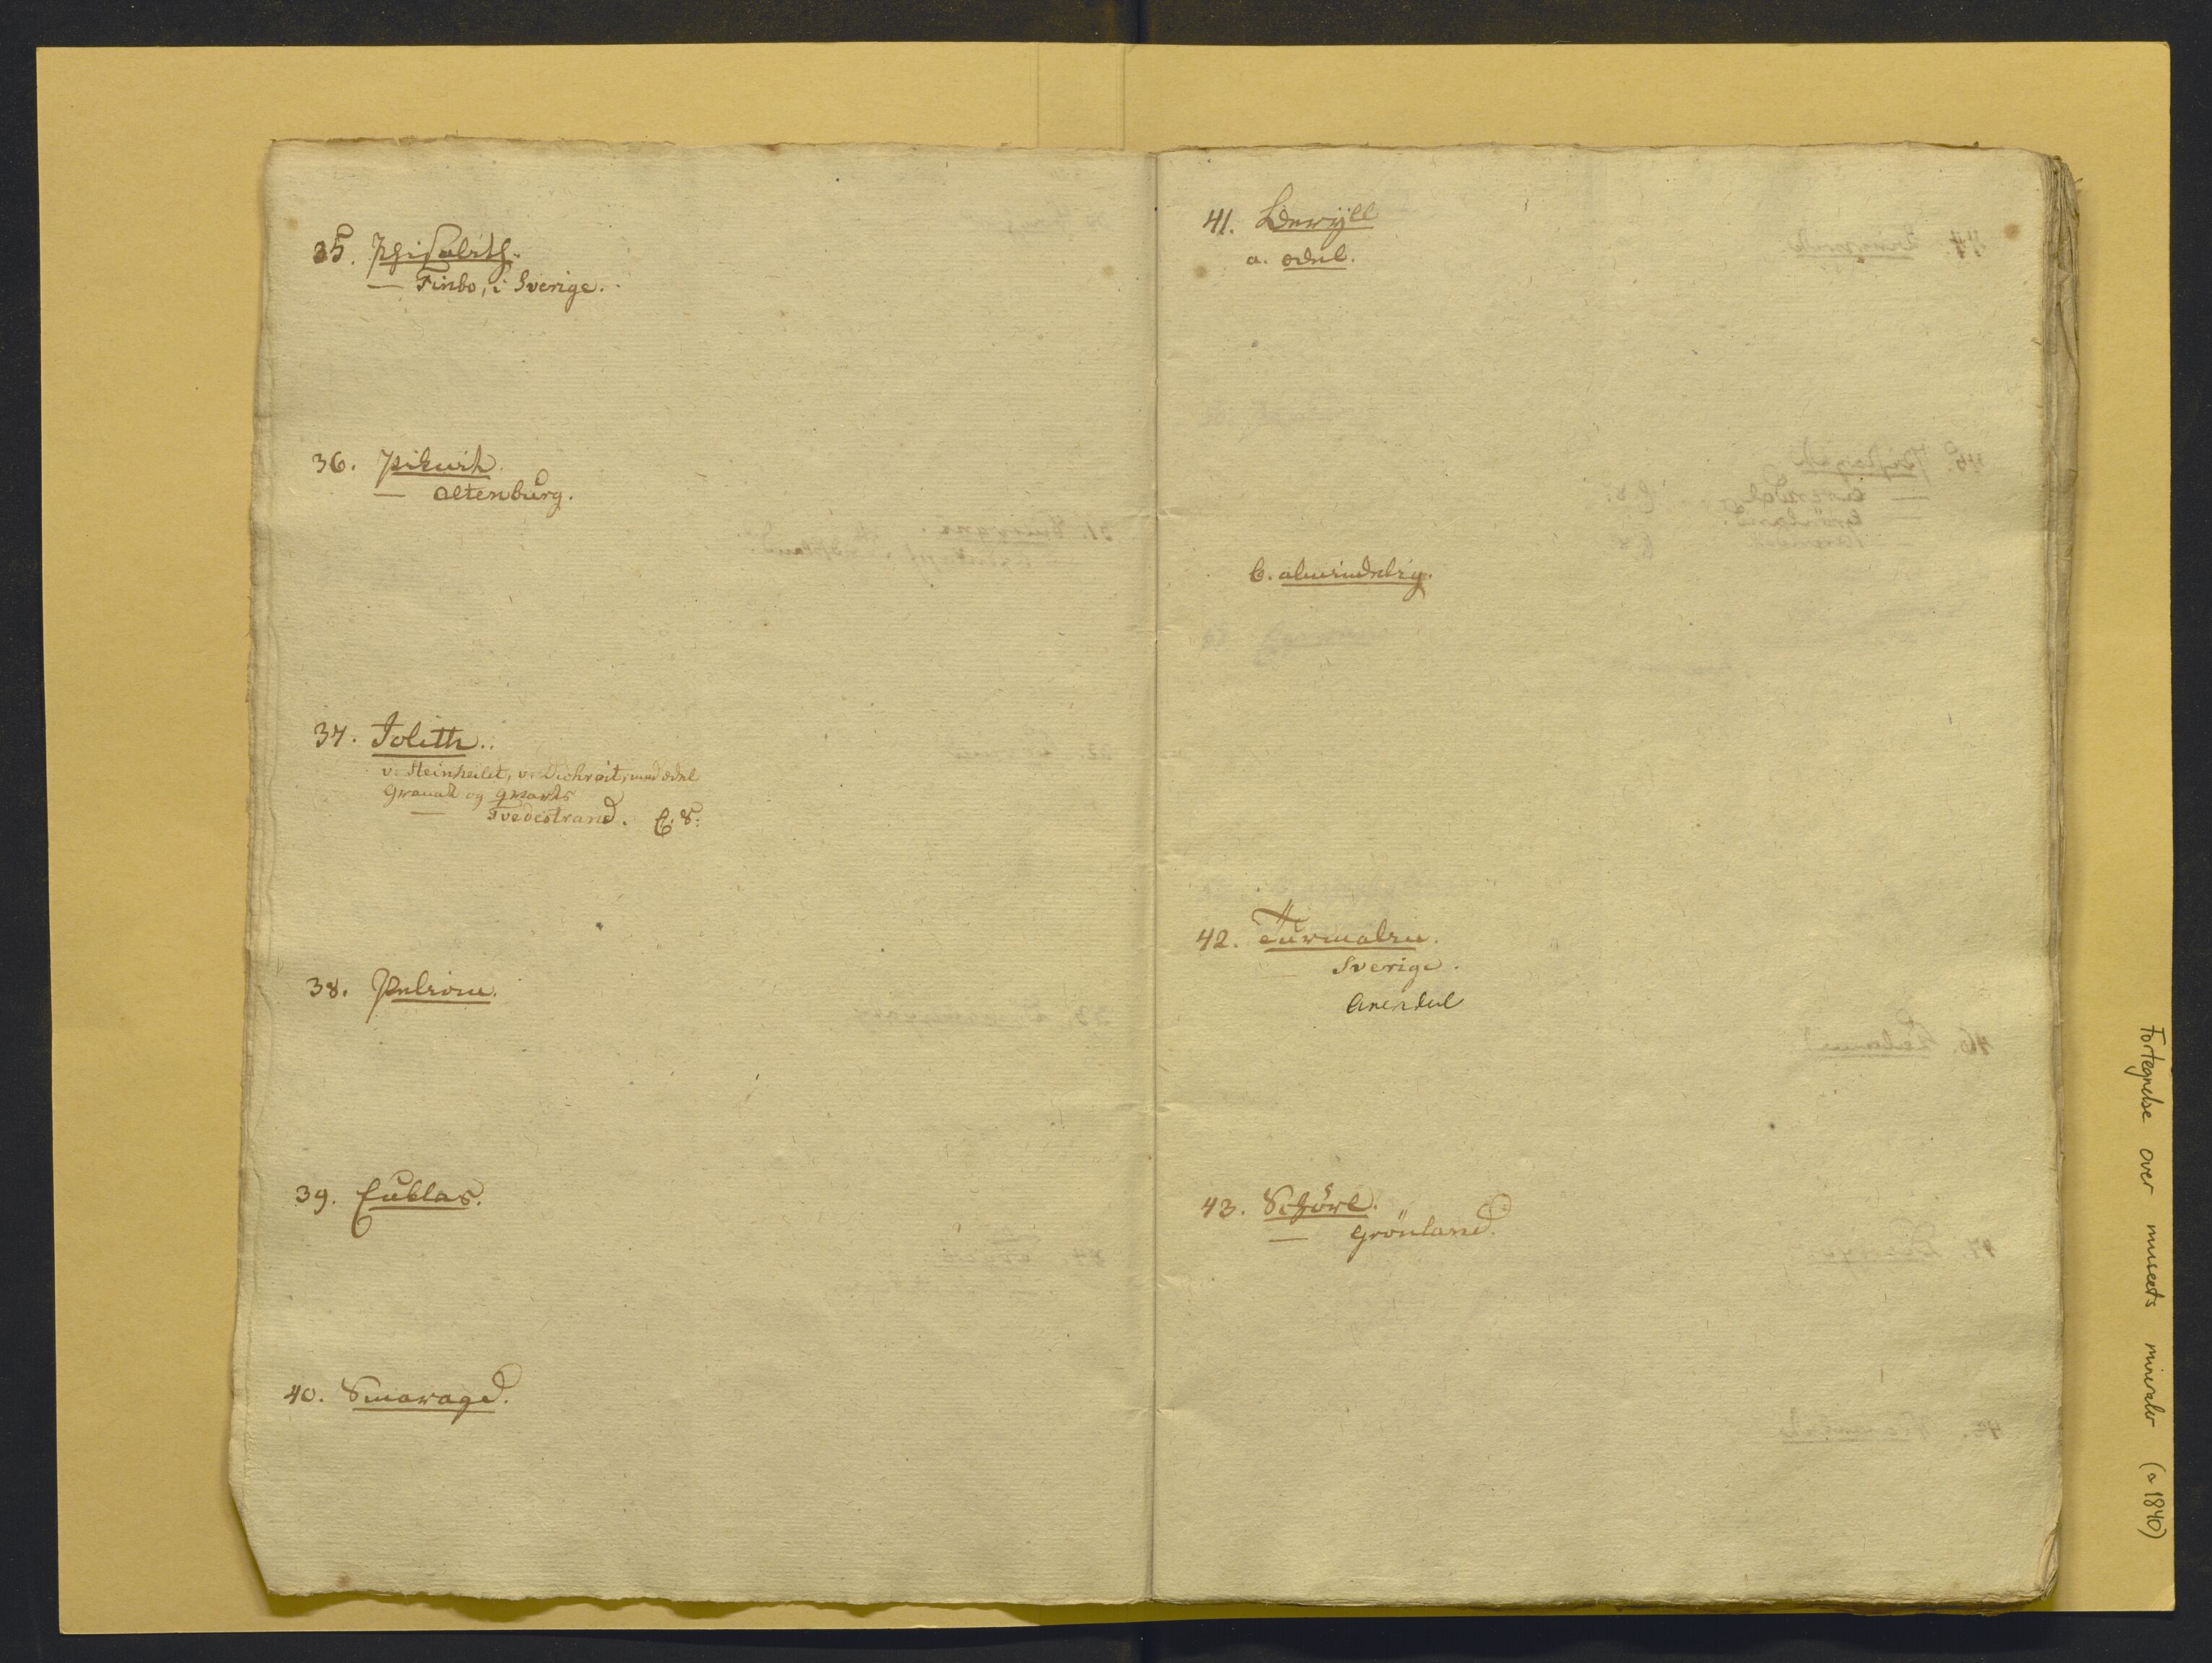 35. Phisalith.
— Finbo, i Sverige.
36. Piknith.
— Altenburg.
37. Iolith.
v. Steinheilit, v. Dichroit, med ædel
Granat og Qvarts
— Tvedestrand. E. S.
38. Peliom.
39. Euklas.
40. Smaragd.
41. Beryll
a. ædel.
b. almindelig.
42. Turmalin.
— Sverige.
Arendal
43. Schörl.
— Grönland.
Fortegnelse over museets mineraler (a 1840)